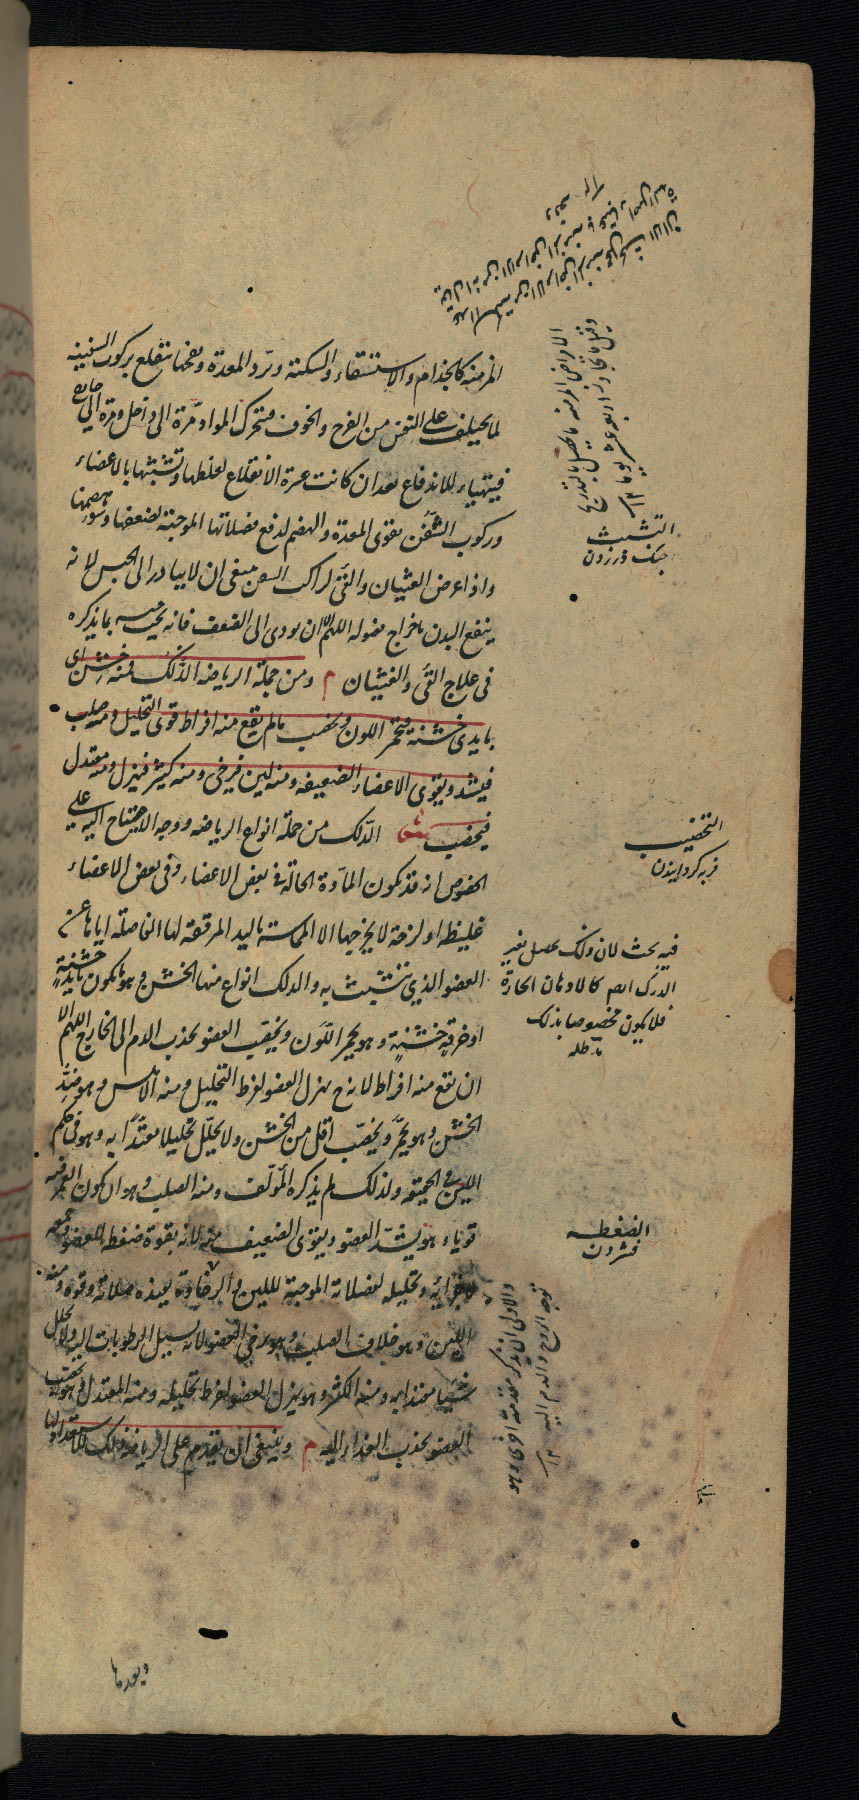 المزمنة كالجذام والاستسقاء والسكتة وبرد المعدة ونفخها ينقلع بركوب السفينة
لما يختلف على النفس من الفرح والخوف فتتحرك المواد مرة الى داخل ومرة الى خارج
فيتهياء للاندفاع بعد ان كانت عسرة الانقلاع لغلظها وتشبثها بالاعضاء
وركوب السفن يقوى المعدة والهضم لدفع فضلاتها الموجبة لضعفها وسوء هضمها
واذا عرض الغثيان والقئ لراكب السفن ينبغى ان لا يبادر الى الحبس لانه
ينفع البدن باخراج فضوله اللهم الا ان يودى الى الضعف فانه يجب حبسه بما يذكره
فى علاج القئ والغثيان م ومن جملة الرياضة الدلك فمنه خشن اى
بايدى خشنة فيحمر اللون ويخصب ما لم يقع منه افراط قوى التحليل ومنه صلب
فيشد ويقوى الاعضاء الضعيفة ومنه لين فيرخى ومنه كثير فيهزل ومنه معتدل
فيخصب ش الدلك من جملة انواع الرياضة ووجه الاحتياج اليه على
الخصوص انه قد تكون المادة الحادثة فى بعض الاعضاء وفى بعض الاعضاء
غليظة او لزجة لا يخرجها الا المماسة باليد المرققة لها الفاصلة اياها عن
العضو الذى تتشبث به والدلك انواع منها الخشن وهو ما يكون بايد خشنة
او خرقة خشنة وهو يحمر اللون ويخصب العضو بجذب الدم الى الخارج اللهم الا
ان يقع منه افراط لانه ح يهزل العضو لفرط التحليل ومنه الاملس وهو ضد
الخشن وهو يحمر ويخصب اقل من الخشن ولا يحلل تحليلا معتدا به وهو فى حكم
اللين فى الحقيقة ولذلك لم يذكره المؤلف ومنه الصلب وهو ان يكون الغمز فيه
قويا وهو يشد العضو ويقوى الضعيف منه لانه بقوة ضغطه للعضو وجمعه
اجزائه وتحليله لفضلاته الموجبة للين والرخاوة يفيده صلابة وقوة ومنه
اللين وهو خلاف الصلب وهو يرخى العضو لانه يسيل الرطوبات اليه ولا يحلل
شيئا معتدا به ومنه الكثير وهو يهزل العضو لفرط تحليله ومنه المعتدل وهو يخصب
العضو بجذب الغذاء اليه م وينبغى ان يقدم على الرياضة دلك للاستعداد لها
الامراض المزمنة ما يحصل بالتدريج
وقيل ما تجاوز اربع عشر يوما ١٢
التشبث
چنگ در زدن
التخصيب
فربه گردانيدن
فيه بحث لان ذلك يحصل بغير
الدلك ايضا كالادهان الحارة
فلا يكون مخصوصا بذلك
الضغطه
فشردن
والاولى ان يذكر مقدمة اخرى وهو
توجه الروح والدم اليه ١٢
وبعدها